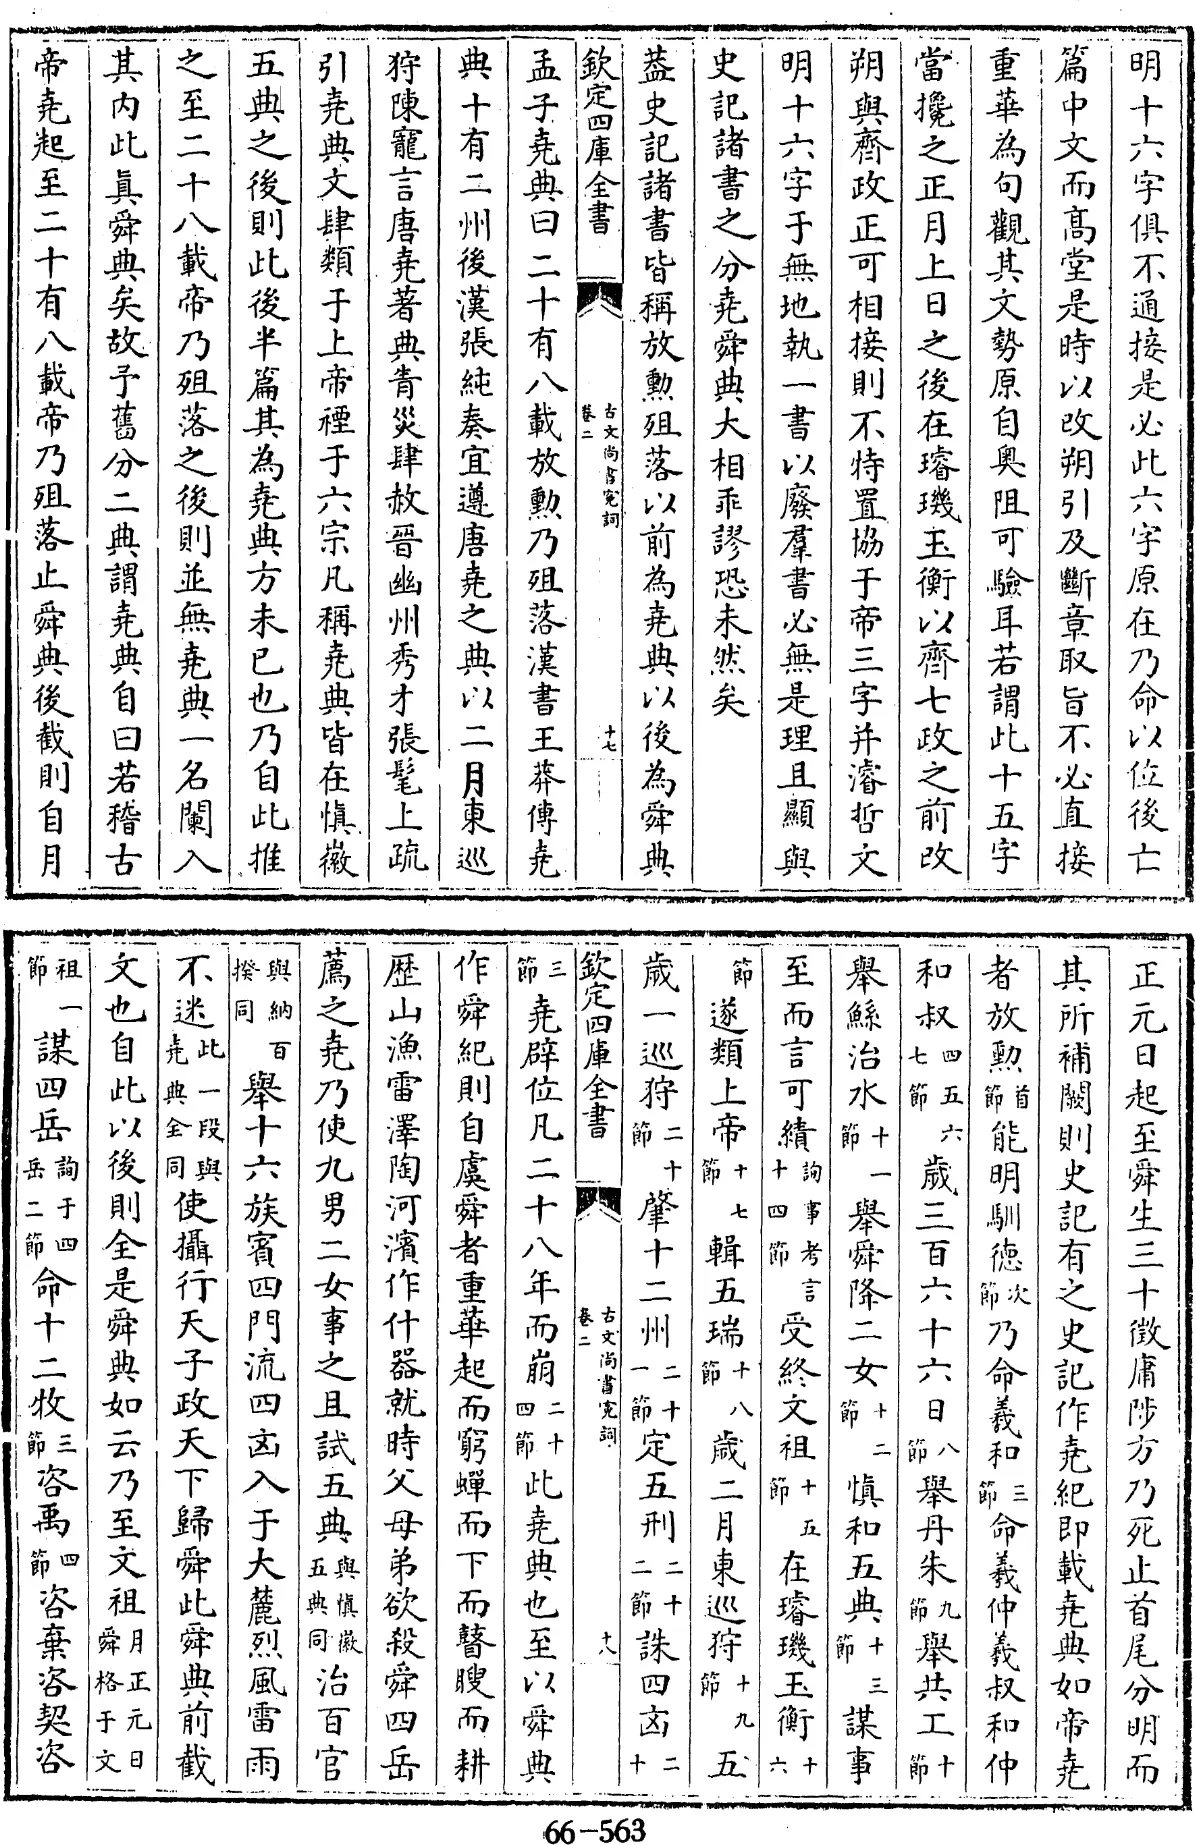 明十六字俱不通接是必此六字原在乃命以位後亡
篇中文而高堂是時以改朔引及斷章取旨不必直接
重華為句觀其文勢原自奧阻可驗耳若謂此十五字
當攙之正月上日之後在璿璣玉衡以齊七政之前改
朔與齊政正可相接則不特置協于帝三字并濬哲文
明十六字于無地執一書以廢羣書必無是理且顯與
史記諸書之分堯舜典大相乖謬恐未然矣
葢史記諸書皆稱放勲殂落以前為堯典以後為舜典
欽定四庫全書
古文尚書寃詞
卷二
十七
孟子堯典曰二十有八載放勲乃殂落漢書王莽傳堯
典十有二州後漢張純奏宜遵唐堯之典以二月東巡
狩陳寵言唐堯著典青災肆赦晉幽州秀才張髦上疏
引堯典文肆類于上帝禋于六宗凡稱堯典皆在慎徽
五典之後則此後半篇其為堯典方未已也乃自此推
之至二十八載帝乃殂落之後則並無堯典一名闌入
其内此真舜典矣故予舊分二典謂堯典自曰若稽古
帝堯起至二十有八載帝乃殂落止舜典後截則自月
正元日起至舜生三十徵庸陟方乃死止首尾分明而
其所補闕則史記有之史記作堯紀即載堯典如帝堯
者放勲首節能明馴德次節乃命羲和三節命羲仲羲叔和仲
和叔四五六七節歲三百六十六日八節舉丹朱九節舉共工十節
舉鯀治水十一節舉舜降二女十二節慎和五典十三節謀事
至而言可績詢事考言十四節受終文祖十五節在璿璣玉衡十六
節遂類上帝十七節輯五瑞十八節歲二月東巡狩十九節五
歲一巡狩二十節肇十二州二十一節定五刑二十二節誅四凶二十
欽定四庫全書
古文尚書寃詞
卷二
十八
三節堯辟位凡二十八年而崩二十四節此堯典也至以舜典
作舜紀則自虞舜者重華起而窮蟬而下而瞽瞍而耕
歴山漁雷澤陶河濱作什器就時父母弟欲殺舜四岳
薦之堯乃使九男二女事之且試五典與慎徽五典同治百官
與納百揆同舉十六族賓四門流四凶入于大麓烈風雷雨
不迷此一段與堯典全同使攝行天子政天下歸舜此舜典前截
文也自此以後則全是舜典如云乃至文祖月正元日舜格于文
祖一節謀四岳詢于四岳二節命十二牧三節咨禹四節咨棄咨契咨
66-563